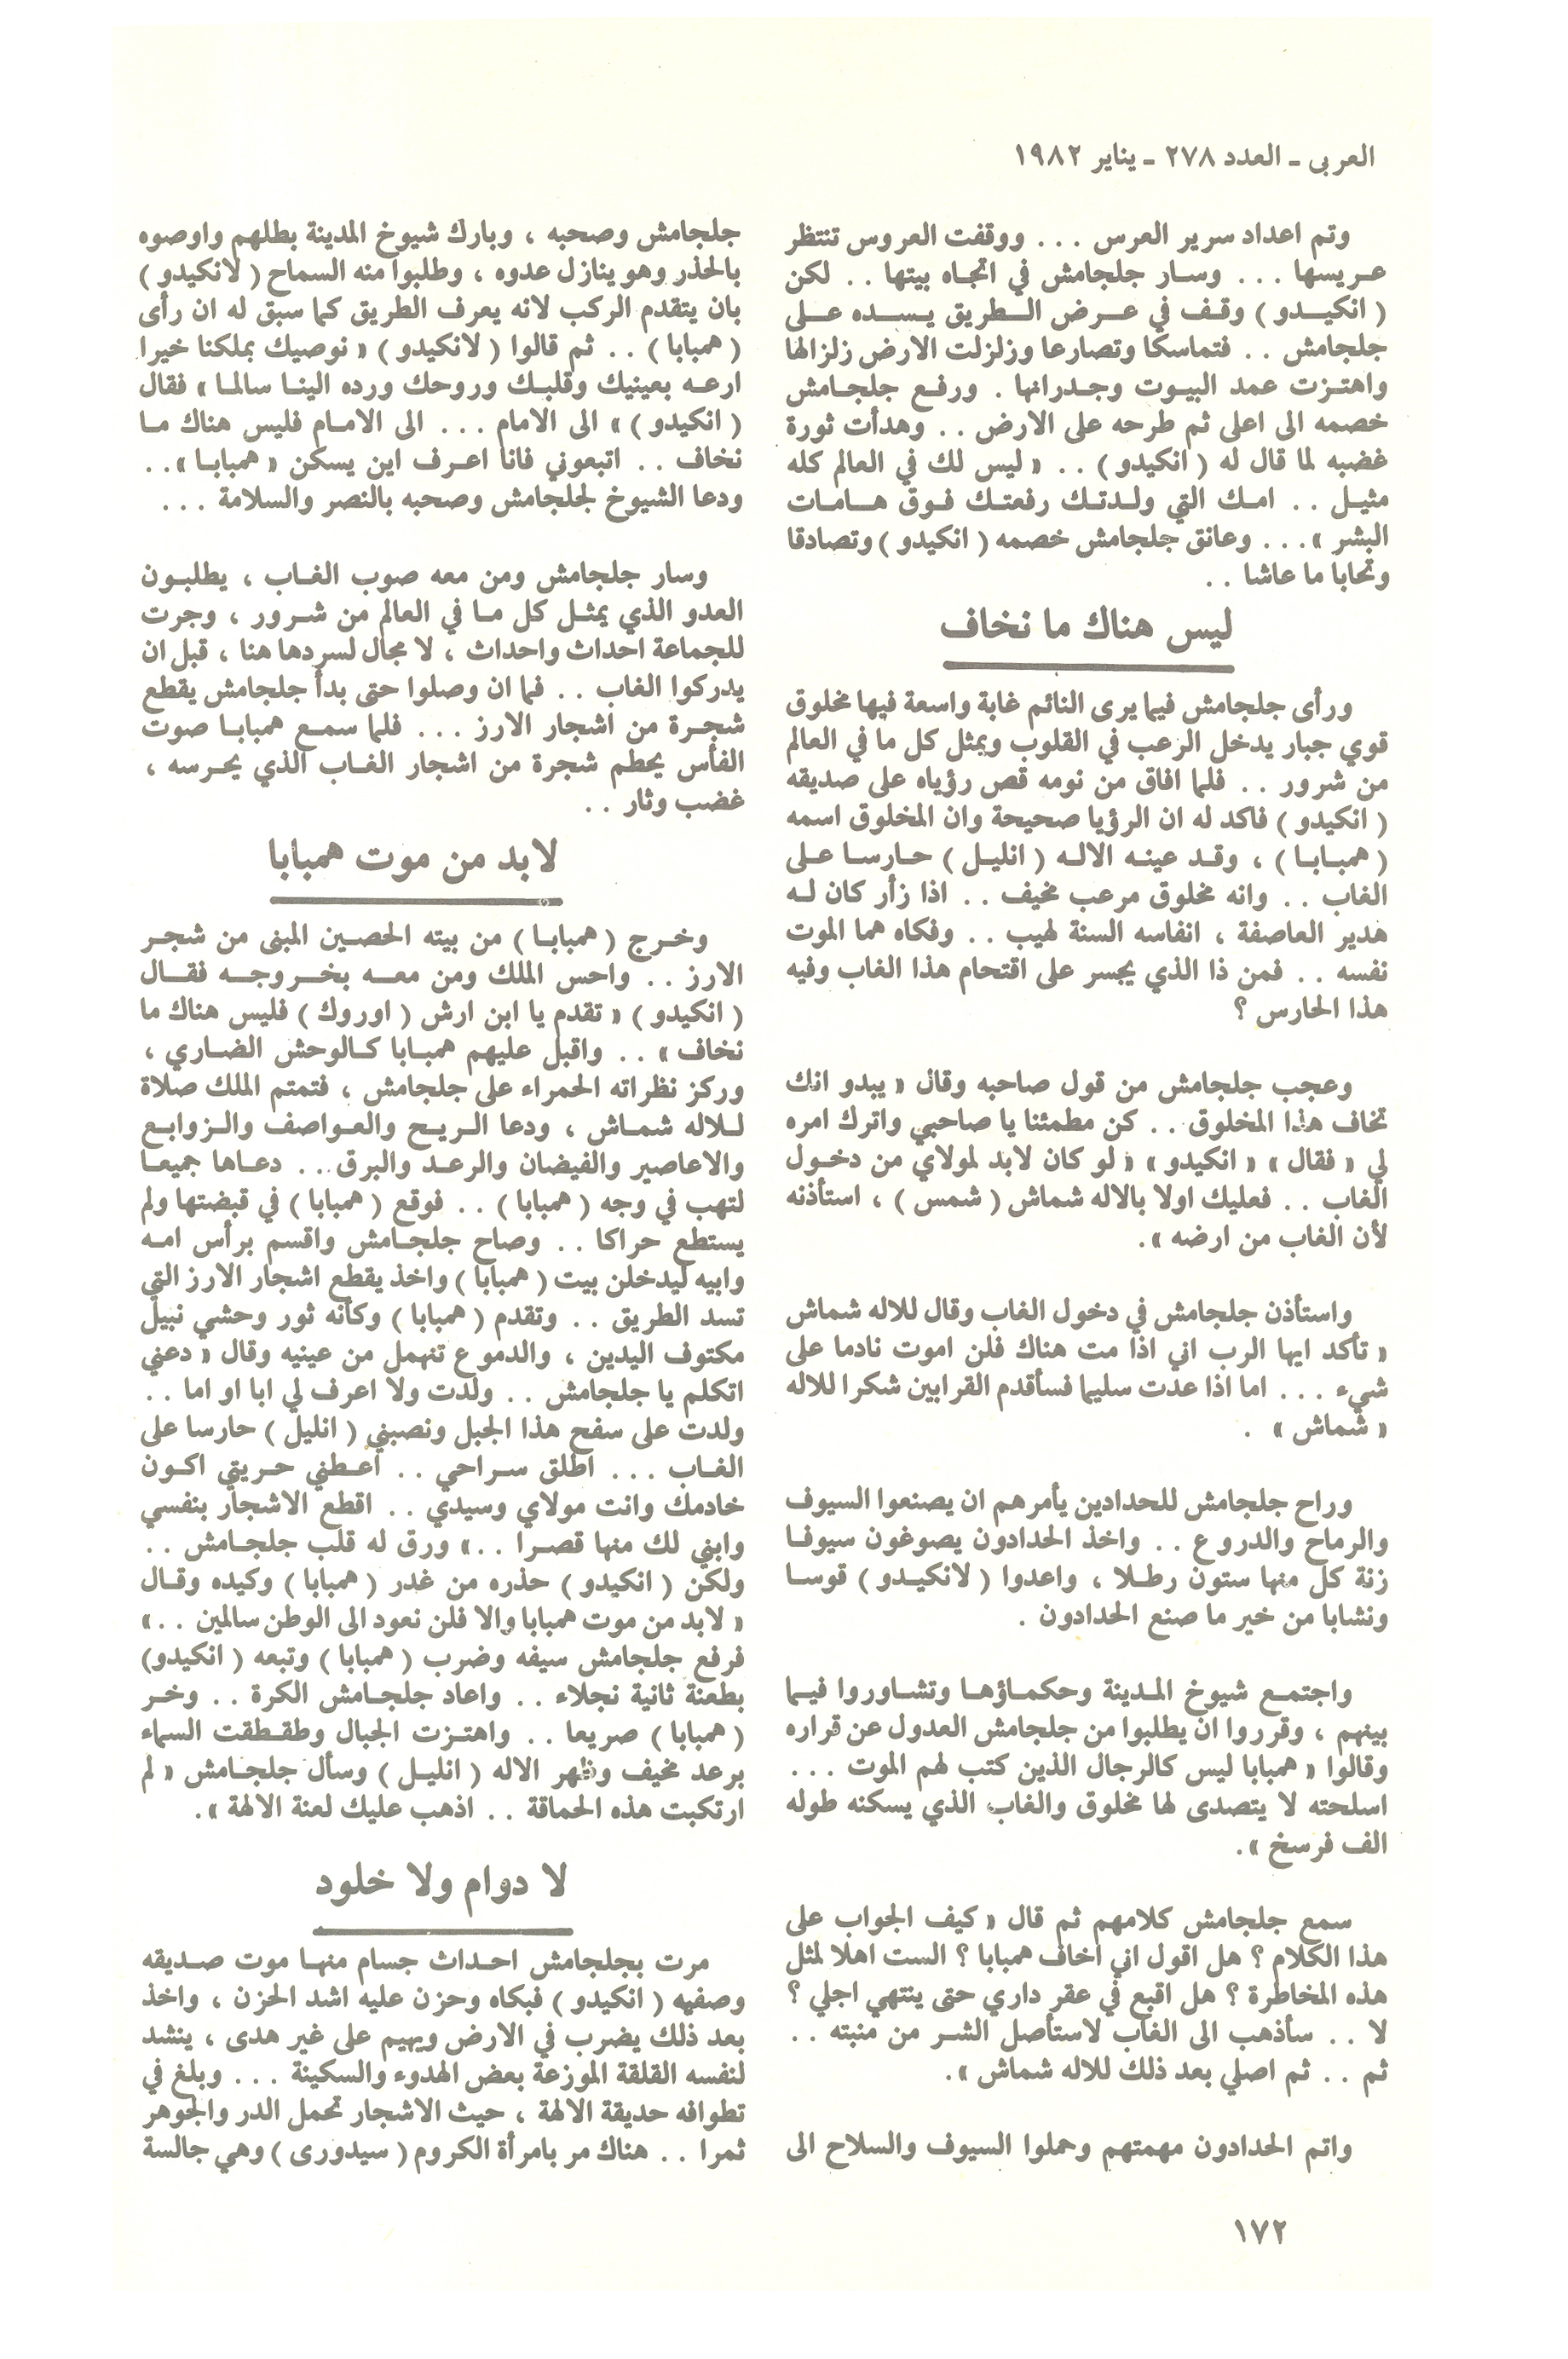 العربى ـ العدد ٢٧٨ ـ يناير ١٩٨٢
وتم اعداد سرير العرس ... ووقفت العروس تنتظر
عريسها ... وسار جلجامش في اتجاه بيتها .. لكن
( انكيدو ) وقف في عرض الطريق يسده على
جلجامش .. فتماسكا وتصارعا وزلزلت الارض زلزالها
واهتزت عمد البيوت وجدرانها . ورفع جلجامش
خصمه الى اعلى ثم طرحه على الارض .. وهدأت ثورة
غضبه لما قال له ( انكيدو ) .. « ليس لك في العالم كله
مثيل .. امك التي ولدتك رفعتك فوق هامات
البشر » ... وعانق جلجامش خصمه ( انكيدو ) وتصادقا
وتحابا ما عاشا ..
ليس هناك ما نخاف
ورأى جلجامش فيما يرى النائم غابة واسعة فيها مخلوق
قوي جبار يدخل الرعب في القلوب ويمثل كل ما في العالم
من شرور .. فلما افاق من نومه قص رؤياه على صديقه
( انكيدو ) فاكد له ان الرؤيا صحيحة وان المخلوق اسمه
( همبابا ) ، وقد عينه الاله ( انليل ) حارسا على
الغاب .. وانه مخلوق مرعب مخيف .. اذا زأر كان له
هدير العاصفة ، انفاسه السنة لهيب .. وفكاه هما الموت
نفسه .. فمن ذا الذي يجسر على اقتحام هذا الغاب وفيه
هذا الحارس ؟
وعجب جلجامش من قول صاحبه وقال « يبدو انك
تخاف هذا المخلوق .. كن مطمئنا يا صاحبي واترك امره
لي « فقال » « انكيدو » « لو كان لابد لمولاي من دخول
الغاب .. فعليك اولا بالاله شماش ( شمس ) ، استأذنه
لأن الغاب من ارضه » .
واستأذن جلجامش في دخول الغاب وقال للاله شماش
« تأكد ايها الرب اني اذا مت هناك فلن اموت نادما على
شيء ... اما اذا عدت سليما فسأقدم القرابين شكرا للاله
« شماش » .
وراح جلجامش للحدادين يأمرهم ان يصنعوا السيوف
والرماح والدروع .. واخذ الحدادون يصوغون سيوفا
زنة كل منها ستون رطلا ، واعدوا ( لانكيدو ) قوسا
ونشابا من خير ما صنع الحدادون .
واجتمع شيوخ المدينة وحكماؤها وتشاوروا فيما
بينهم ، وقرروا ان يطلبوا من جلجامش العدول عن قراره
وقالوا « همبابا ليس كالرجال الذين كتب لهم الموت ...
اسلحته لا يتصدى لها مخلوق والغاب الذي يسكنه طوله
الف فرسخ » .
سمع جلجامش كلامهم ثم قال « كيف الجواب على
هذا الكلام ؟ هل اقول اني اخاف همبابا ؟ الست اهلا لمثل
هذه المخاطرة ؟ هل اقبع في عقر داري حتى ينتهي اجلي ؟
لا .. سأذهب الى الغاب لاستأصل الشر من منبته ..
ثم .. ثم اصلي بعد ذلك للاله شماش » .
واتم الحدادون مهمتهم وحملوا السيوف والسلاح الى
جلجامش وصحبه ، وبارك شيوخ المدينة بطلهم واوصوه
بالحذر وهو ينازل عدوه ، وطلبوا منه السماح ( لانكيدو )
بان يتقدم الركب لانه يعرف الطريق كما سبق له ان رأى
( همبابا ) .. ثم قالوا ( لانكيدو ) « نوصيك بملكنا خيرا
ارعه بعينيك وقلبك وروحك ورده الينا سالما » فقال
( انكيدو ) » الى الامام ... الى الامام فليس هناك ما
نخاف .. اتبعوني فانا اعرف اين يسكن « همبابا » ..
ودعا الشيوخ لجلجامش وصحبه بالنصر والسلامة ...
وسار جلجامش ومن معه صوب الغاب ، يطلبون
العدو الذي يمثل كل ما في العالم من شرور ، وجرت
للجماعة احداث واحداث ، لا مجال لسردها هنا ، قبل ان
يدركوا الغاب .. فما ان وصلوا حتى بدأ جلجامش يقطع
شجرة من اشجار الارز ... فلما سمع همبابا صوت
الفأس يحطم شجرة من اشجار الغاب الذي يحرسه ،
غضب وثار ..
لابد من موت همبابا
وخرج ( همبابا ) من بيته الحصين المبنى من شجر
الارز .. واحس الملك ومن معه بخروجه فقال
( انكيدو ) « تقدم يا ابن ارش ( اوروك ) فليس هناك ما
نخاف » .. واقبل عليهم همبابا كالوحش الضاري ،
وركز نظراته الحمراء على جلجامش ، فتمتم الملك صلاة
للاله شماش ، ودعا الريح والعواصف والزوابع
والاعاصير والفيضان والرعد والبرق .. دعاها جميعا
لتهب في وجه ( همبابا ) .. فوقع ( همبابا ) في قبضتها ولم
يستطع حراكا .. وصاح جلجامش واقسم برأس امه
وابيه ليدخلن بيت ( همبابا ) واخذ يقطع اشجار الارز التي
تسد الطريق .. وتقدم ( همبابا ) وكأنه ثور وحشي نبيل
مكتوف اليدين ، والدموع تنهمل من عينيه وقال « دعني
اتكلم يا جلجامش .. ولدت ولا اعرف لي ابا او اما ..
ولدت على سفح هذا الجبل ونصبني ( انليل ) حارسا على
الغاب ... اطلق سراحي .. اعطني حريتي اكون
خادمك وانت مولاي وسيدي .. اقطع الاشجار بنفسي
وابني لك منها قصرا .. » ورق له قلب جلجامش ..
ولكن ( انكيدو ) حذره من غدر ( همبابا ) وكيده وقال
« لابد من موت همبابا والا فلن نعود الى الوطن سالمين .. »
فرفع جلجامش سيفه وضرب ( همبابا ) وتبعه ( انكيدو)
بطعنة ثانية نجلاء .. واعاد جلجامش الكرة .. وخر
( همبابا ) صريعا .. واهتزت الجبال وطقطقت السماء
برعد مخيف وظهر الاله ( انليل ) وسأل جلجامش « لم
ارتكبت هذه الحماقة .. اذهب عليك لعنة الالهة » .
لا دوام ولا خلود
مرت بجلجامش احداث جسام منها موت صديقه
وصفيه ( انكيدو ) فبكاه وحزن عليه اشد الحزن ، واخذ
بعد ذلك يضرب في الارض ويهيم على غير هدى ، ينشد
لنفسه القلقة الموزعة بعض الهدوء والسكينة ... وبلغ في
تطوافه حديقة الالهة ، حيث الاشجار تحمل الدر والجوهر
ثمرا .. هناك مر بامرأة الكروم ( سيدورى ) وهي جالسة
١٧٢